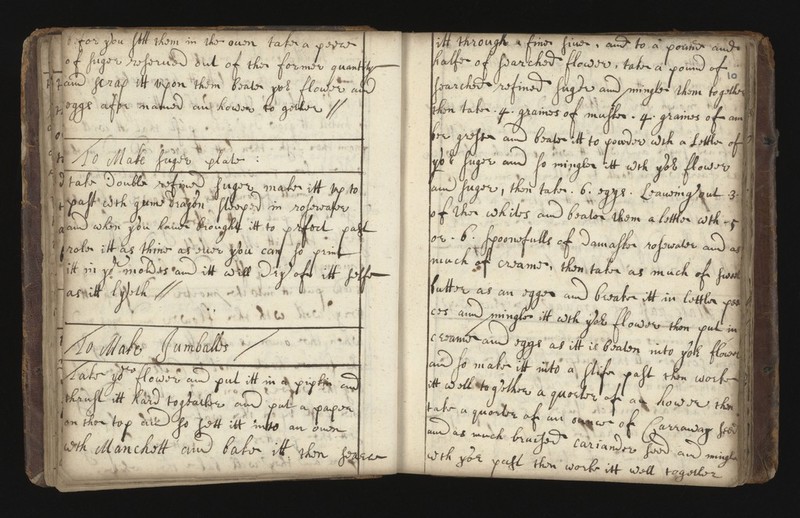 for you sett them in the oven take a peece
of suger reserved out of the former quantity
and scrap itt upon them beate yor flower and
eggs afor named an hower to gether //
To Make suger plate :
take double refined suger make itt up to
past wth gume dragon steeped in rosewater
and when you have brought itt to prfect past
role itt as thine as ever you can so print
itt in yr moldes and itt will dry of itt selfe
as itt lyeth //
To Make Jumballs /
Take yor flower and put itt in a pipkin and
thrust itt hard togeather and put a paper
on the top and so sett itt into an oven
with Manchett and bake itt then searce
10
itt through a fine sive, and to a pound and
halfe of searched flower, take a pound of
searched refined suger and mingle them together
then take 4 graines of muske 4 graines of am
ber greese and beate itt to powder wth a little of
yor suger and so mingle itt wth yor flower
and suger, then take 6 eggs Leaveing out 3
of the whites and beate them a little wth 5
or 6 spoonefulls of damaske rosewater and as
much of creame, then take as much of sweet
butter as an egge and breake itt in little pee
ces and mingle itt wth yor flower then put in
creame and eggs as itt is beaten into yor flower
and so make itt into a stife past then worke
itt well together a quarter of an hower then
take a quarter of an ounce of Carraway seed
and as much bruised cariander seed and mingle
wth yor past then work itt well together